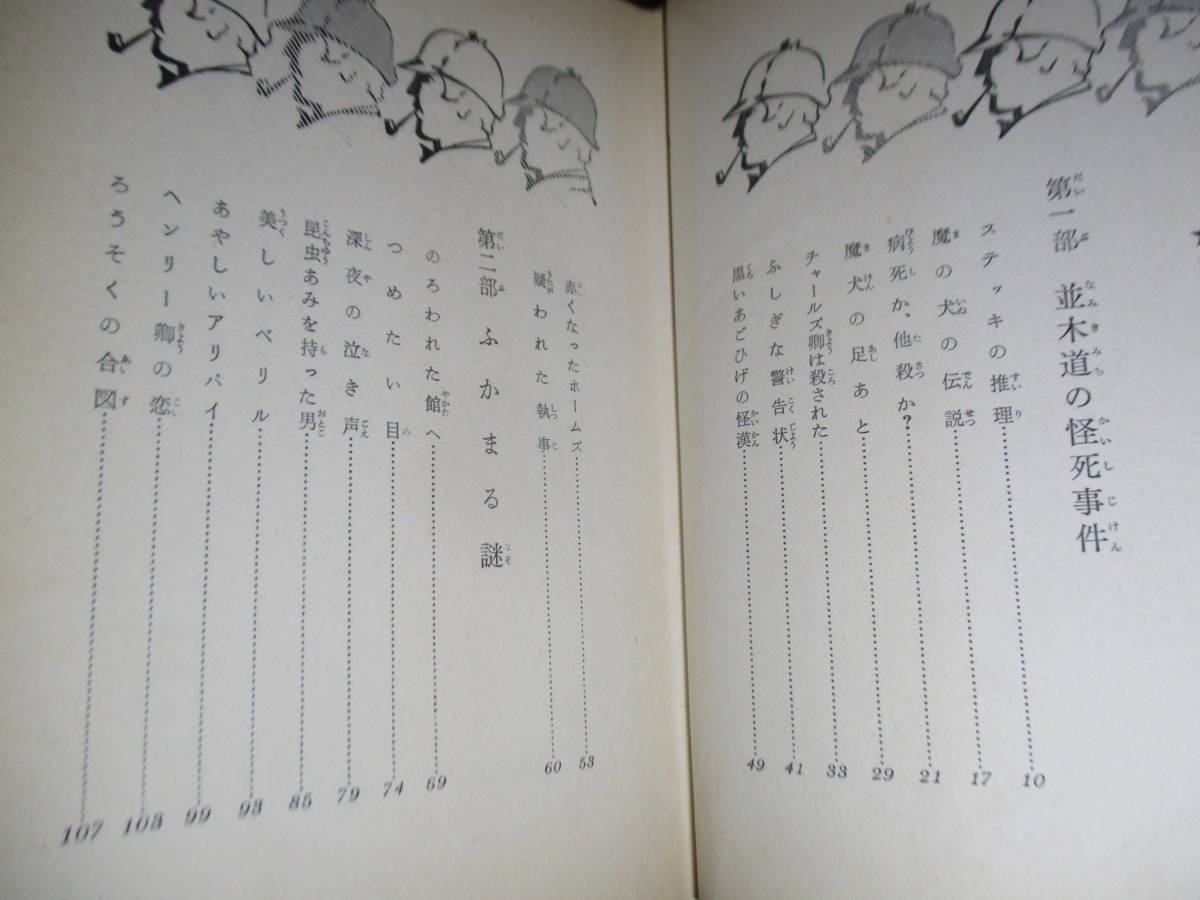 第一部 並木道の怪死事件
ステッキの推理 10
魔の犬の伝説 17
病死か、他殺か? 21
魔犬の足あと 29
チャールズ卿は殺された 33
ふしぎな警告状 41
黒いあごひげの怪漢 49
赤くなったホームズ 53
疑われた執事 60
第二部 ふかまる謎
のろわれた館へ 69
つめたい目 74
深夜の泣き声 79
昆虫あみを持った男 85
美しいベリル 93
あやしいアリバイ 99
ヘンリー卿の恋 103
ろうそくの合図 107